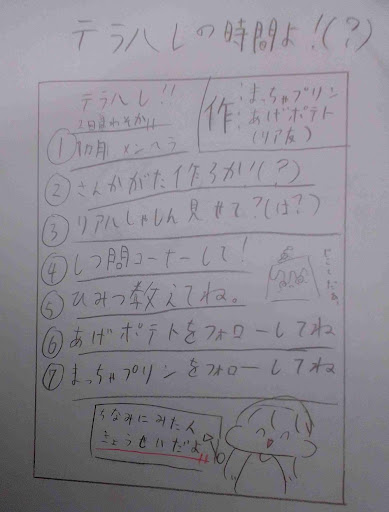 テラハしの時間よ!(?)
テラハし!!
作:まっちゃプリン
:あげポテト
(リア友)
① 初月 メンヘラ
② さんかがた作ろか!(?)
③ リアルしゃしん見せて?(は?)
④ しつ問コーナーして!
⑤ ひみつ教えてね。
⑥ あげポテトをフォローしてね
⑦ まっちゃプリンをフォローしてね
ちなみにみたん
きょうせいだよ